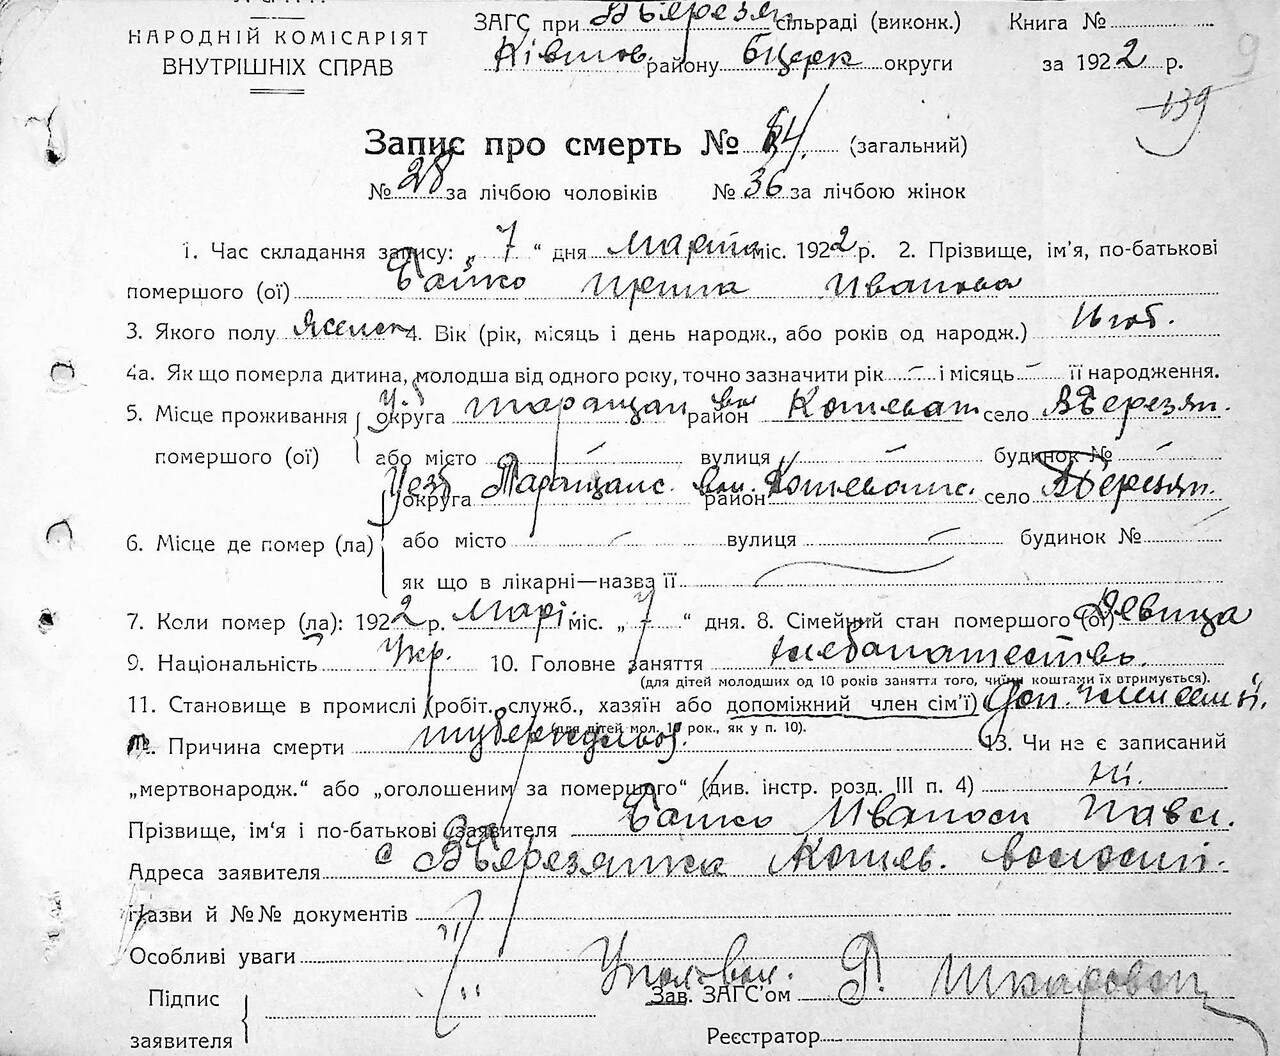 НАРОДНІЙ КОМІСАРІЯТ
ВНУТРІШНІХ СПРАВ
ЗАГС при В Березян. сільраді (виконк.) Книга №
району Бцерк округи за 1922 р.
9
139
Запис про смерть № 64 (загальний)
№ 28 за лічбою чоловіків № 36 за лічбою жінок
1. Час складання запису: „ 7 “ дня марта міс. 1922 р. 2. Прізвище, ім'я, по-батькові
помершого (ої) Бойко Ирина Иванова
3. Якого полу Женск 4. Вік (рік, місяць і день народж., або років од народж.) 16 год.
4а. Як що померла дитина, молодша від одного року, точно зазначити рік – і місяць – її народження.
5. Місце проживання округа Таращан район Кошеват село В Березян.
помершого (ої) або місто – вулиця – будинок №
Уезд округа Таращанс. вол. район Кошеватс. село В Березян.
6. Місце де помер (ла) або місто – вулиця – будинок № –
як що в лікарні—назва її
7. Коли помер (ла): 1922 р. Март міс. „ 7 “ дня. 8. Сімейний стан помершого (ої) Девица
9. Національність Укр. 10. Головне заняття хлебопашество.
(для дітей молодших од 10 років заняття того, чиїми коштами їх втримується).
11. Становище в промислі (робіт., служб., хазяїн або допоміжний член сім'ї) Доп. член семьи.
(для дітей мол. 10 рок., як у п. 10).
Причина смерти туберкульоз. 13. Чи не є записаний
„мертвонародж.“ або „оголошеним за помершого“ (див. інстр. розд. III п. 4) Ні.
Прізвище, ім'я і по-батькові заявителя Бойко Иван Павл.
Адреса заявителя с В Березянка Кошев. волости.
Назви й №№ документів
Особливі уваги
Підпис
заявителя
Зав. ЗАГС'ом
Реєстратор